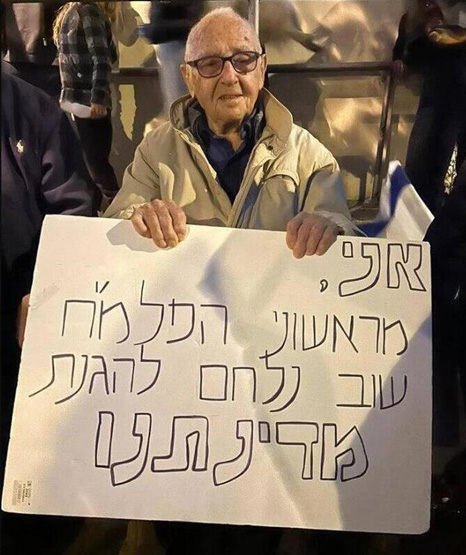 אני,
מראשוני הפלמ"ח
שוב נלחם להגנת
מדינתנו